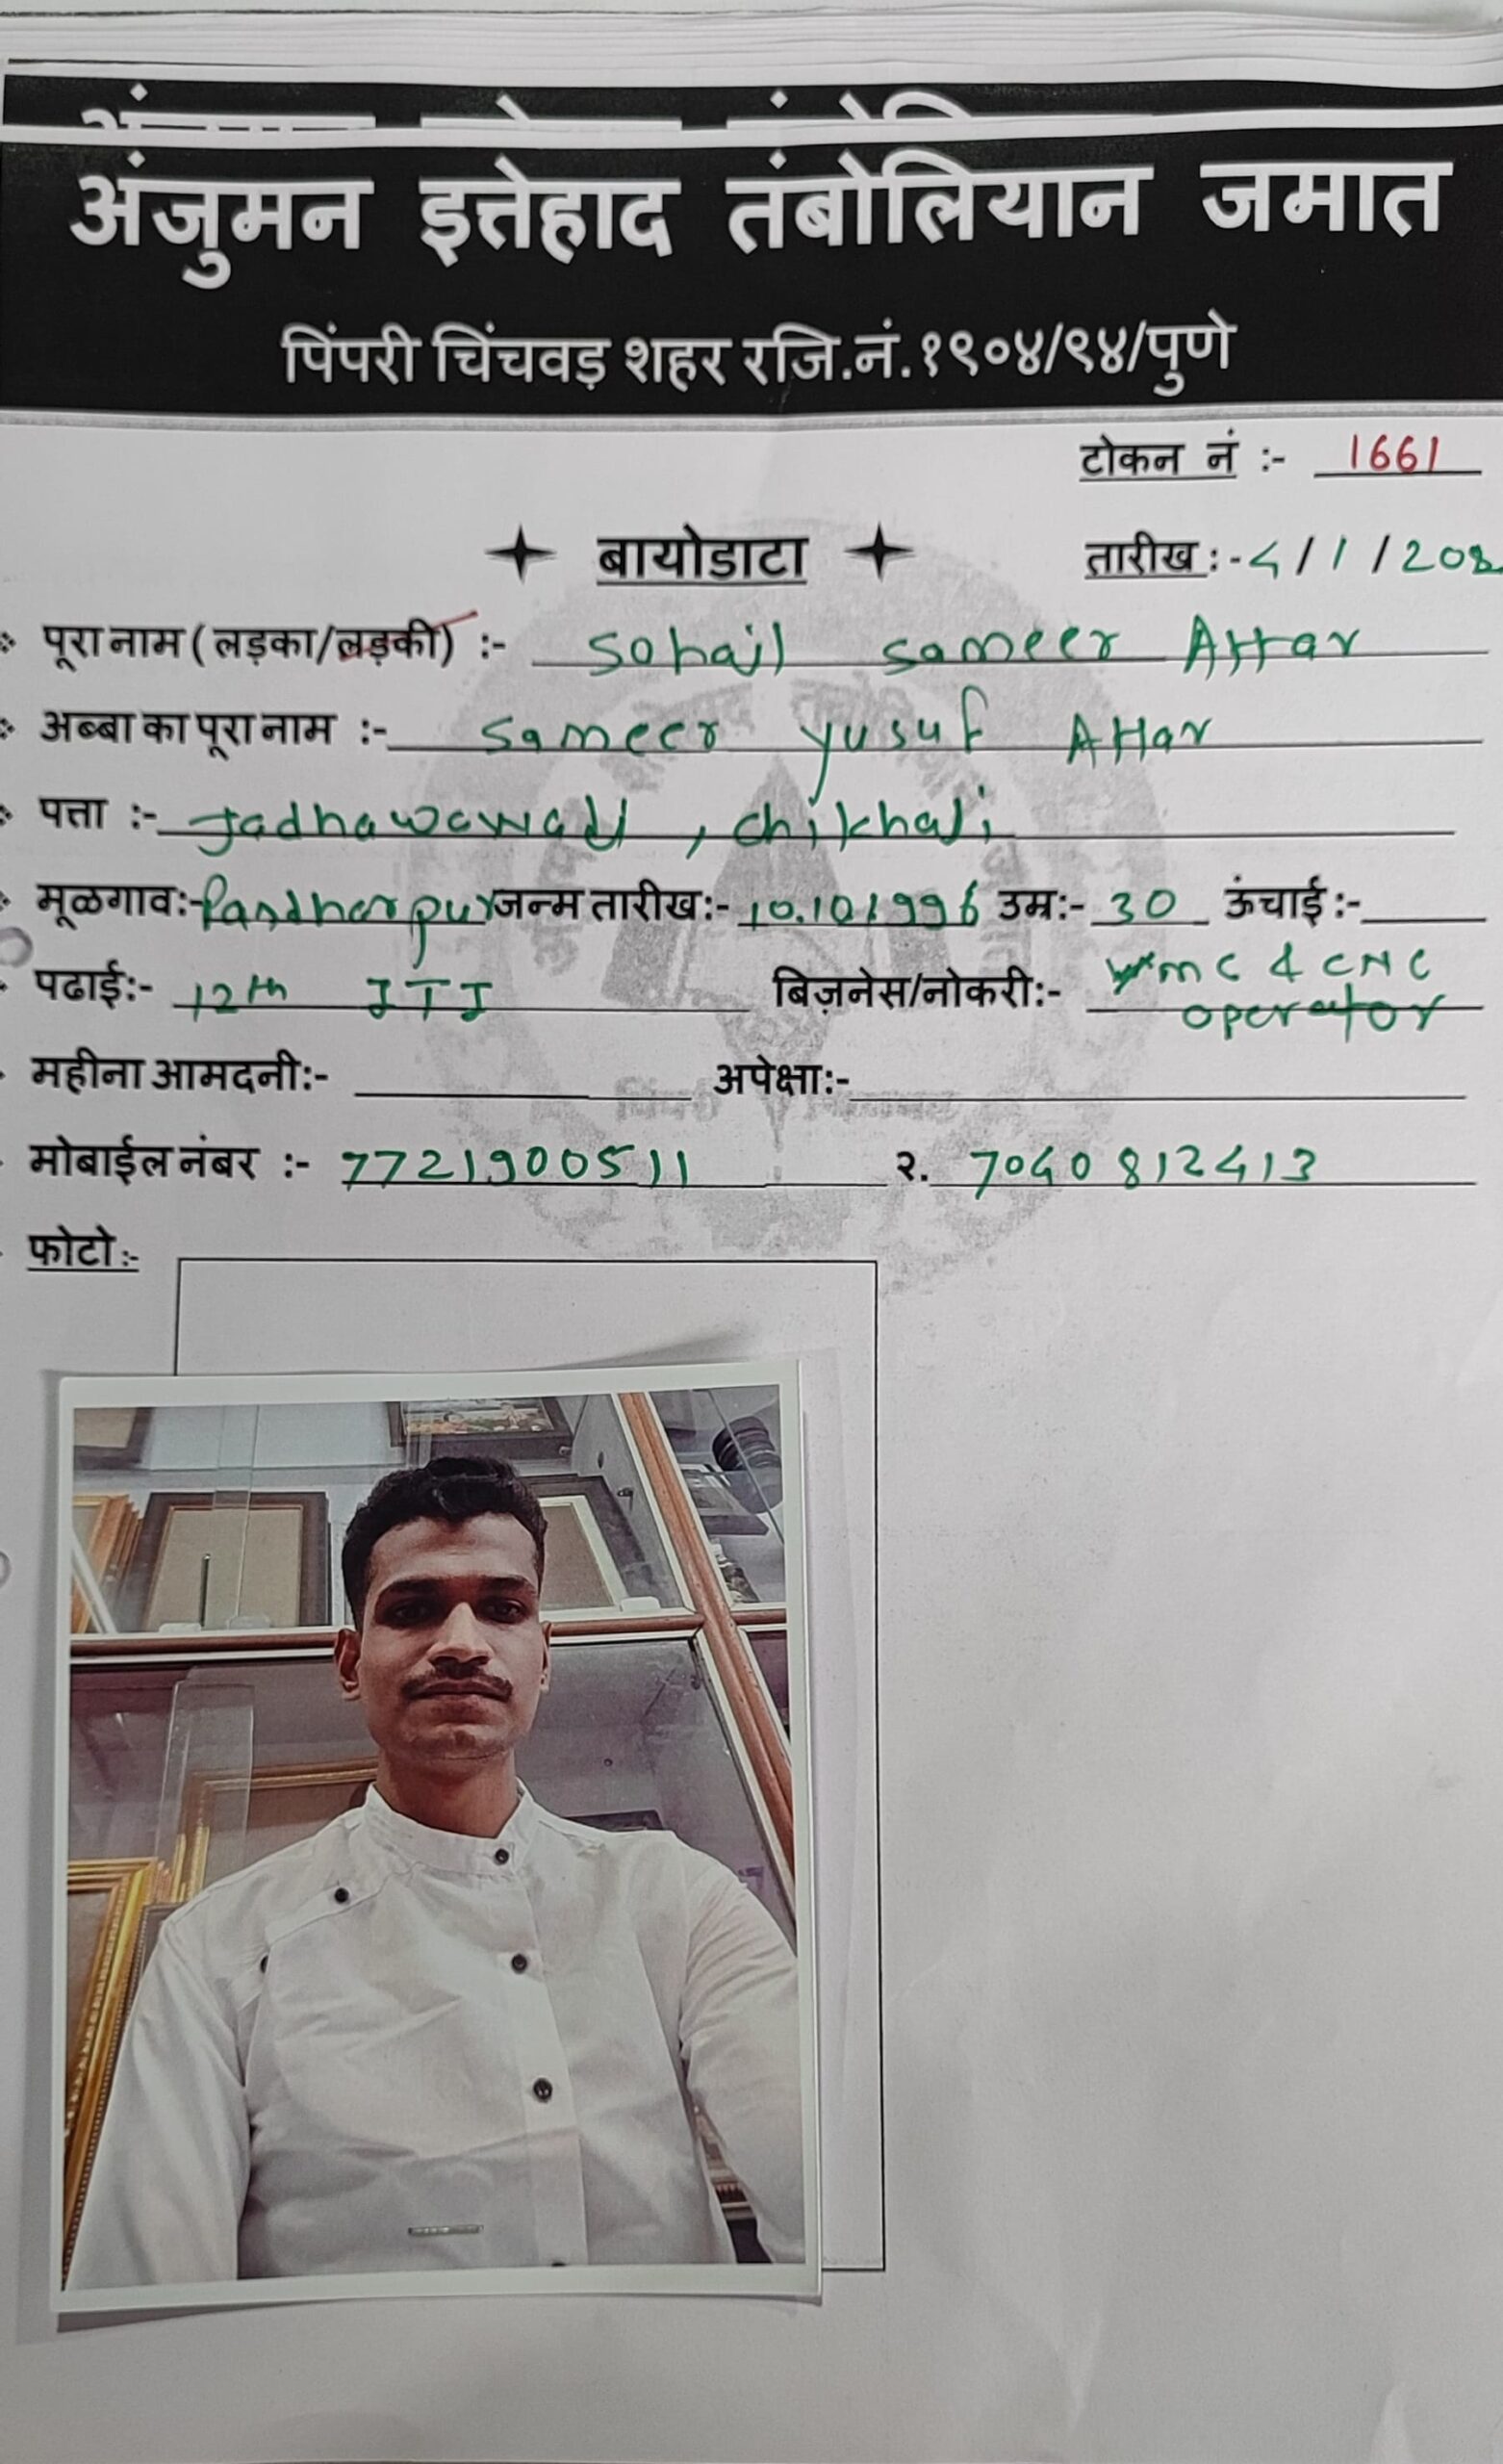 अंजुमन इत्तेहाद तंबोलियान जमात
पिंपरी चिंचवड़ शहर रजि.नं.१९०४/९४/पुणे
टोकन नं :- 1661
बायोडाटा
तारीख :- 4/1/202
पूरा नाम (लड़का/लड़की) :- Sohail Sameer Attar
अब्बा का पूरा नाम :- Sameer Yusuf Attar
पत्ता :- Jadhavwadi, Chikhali
मूळगाव:- Pandharpur जन्म तारीख:- 10.10.1996 उम्र:- 30 ऊंचाई :-
पढाई:- 12th ITI बिज़नेस/नोकरी:- VMC & CNC
operator
महीना आमदनी:- अपेक्षा:-
मोबाईल नंबर :- 7721900511 २. 7040812413
फोटो:-